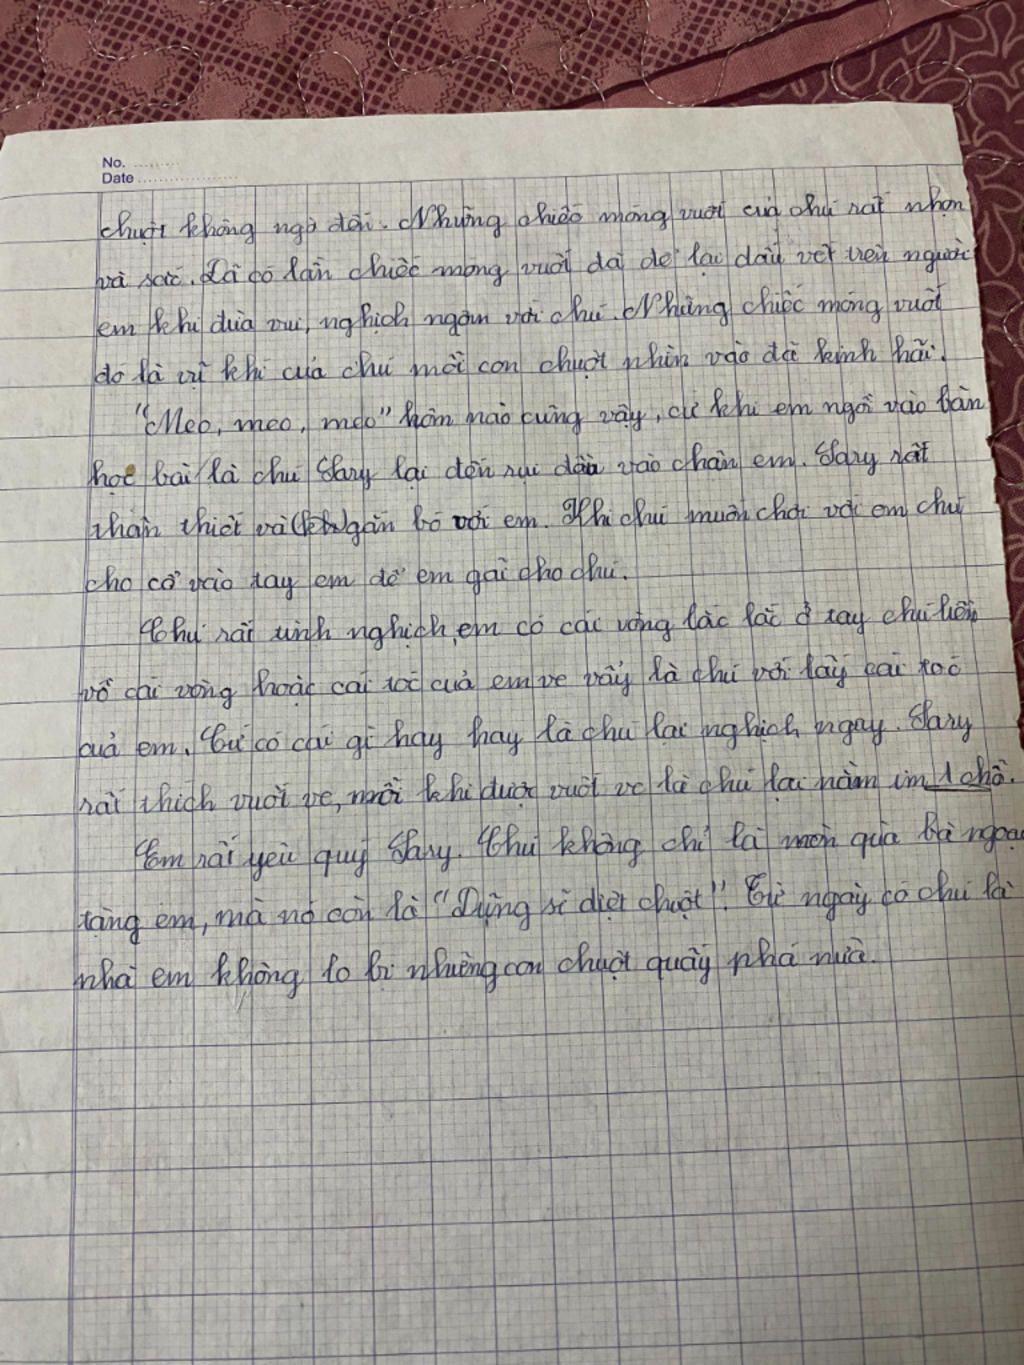 No.
Date
chuột không ngờ đến. Những chiếc móng vuốt của chú rất nhọn
và sắc. Đã có lần chiếc móng vuốt đã để lại dấu vết trên người
em khi đùa vui, nghịch ngợm với chú. Những chiếc móng vuốt
đó là vũ khí của chú mỗi con chuột nhìn vào đề kinh hãi.
"Meo, meo, meo" hôm nào cũng vậy, cứ khi em ngồi vào bàn
học bài là chú Sary lại đến rụi đầu vào chân em. Sary rất
thân thiết và gắn bó với em. Khi chú muốn chơi với em chú
cho cổ vào tay em để em gãi cho chú.
Chú rất tinh nghịch, em có cái vòng lắc lắc ở tay chú liền
vồ cái vòng hoặc cái tóc của em ve vẩy là chú với lấy cái tóc
của em. Cứ có cái gì hay hay là chú lại nghịch ngay. Sary
rất thích vuốt ve, mỗi khi được vuốt ve là chú lại nằm im 1 chỗ.
Em rất yêu quý Sary. Chú không chỉ là món quà bà ngoại
tặng em, mà nó còn là "Dũng sĩ diệt chuột". Từ ngày có chú là
nhà em không lo bị những con chuột quấy phá nữa.